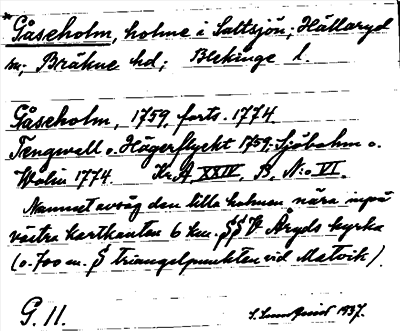 *Gåseholm, holme i Saltsjön; Hällaryd
sn; Bräkne hd; Blekinge l.
Gåseholm, 1759, forts. 1774
Tengwall o. Hägerflycht 1759; Sjöbohm o.
Wolin 1774. Kr.A XXIV, B, N:o VI.
Namnet avsåg den lilla holmen nära inpå
västra kartkanten 6 km. §§V Åryds kyrka
(o. 700 m. § triangelpunkten vid Matvik).
G. 11.
1937.